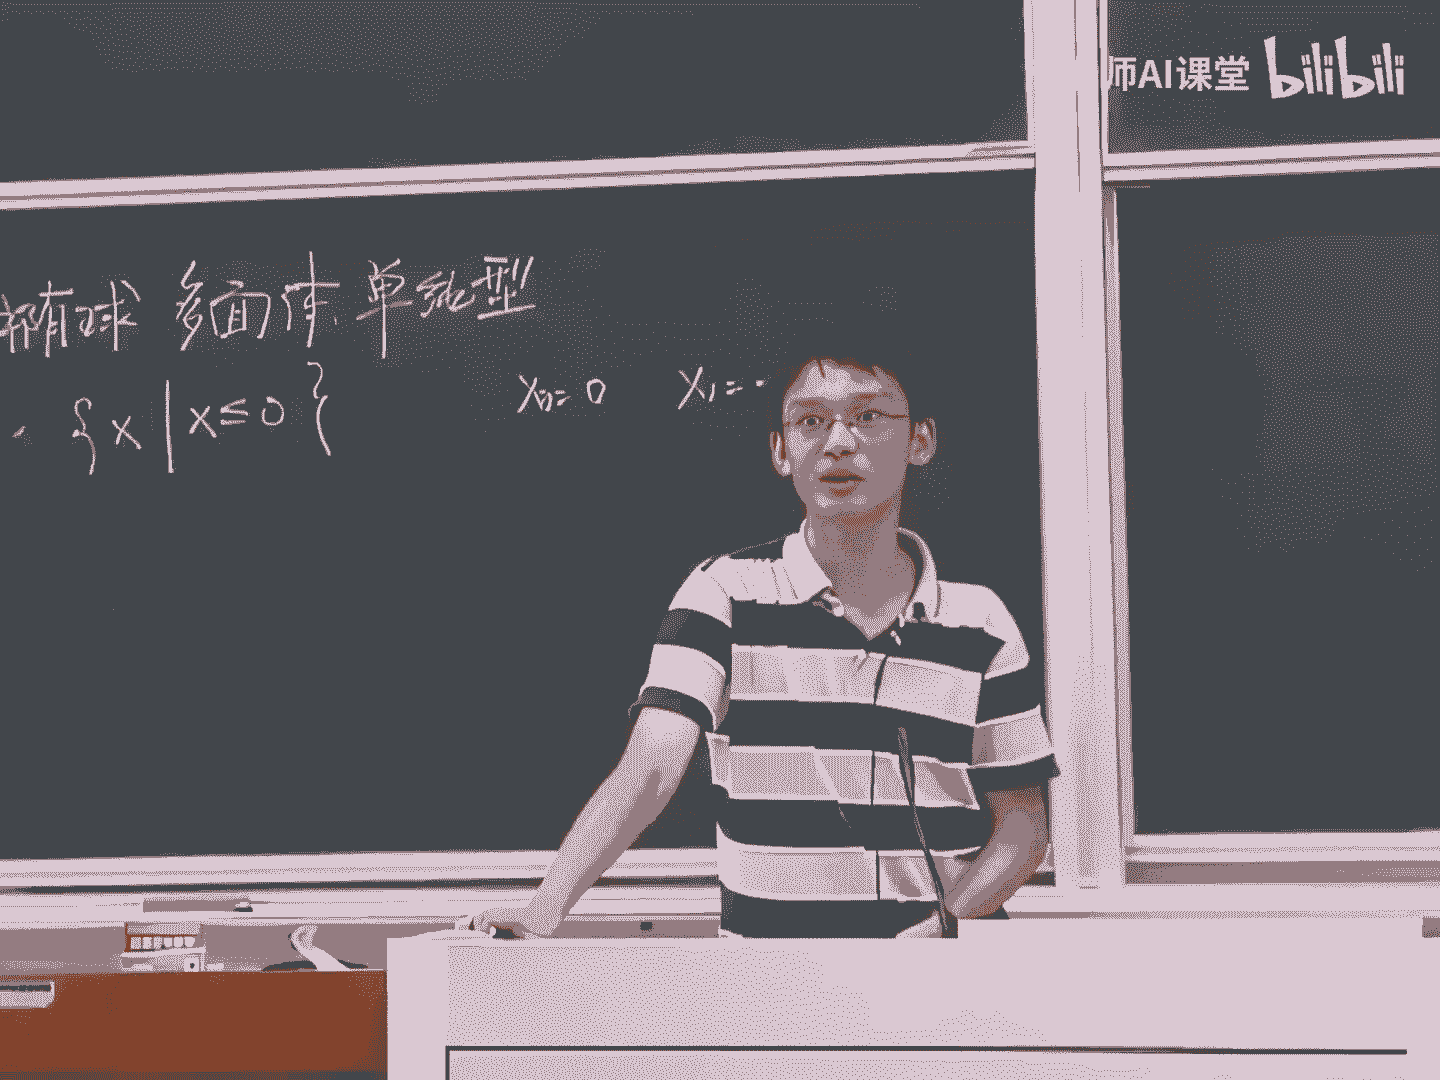 师AI课堂 bilibili
椭球 多面体 单纯型
{x | x ≤ 0}
X₀ = 0 X₁ =